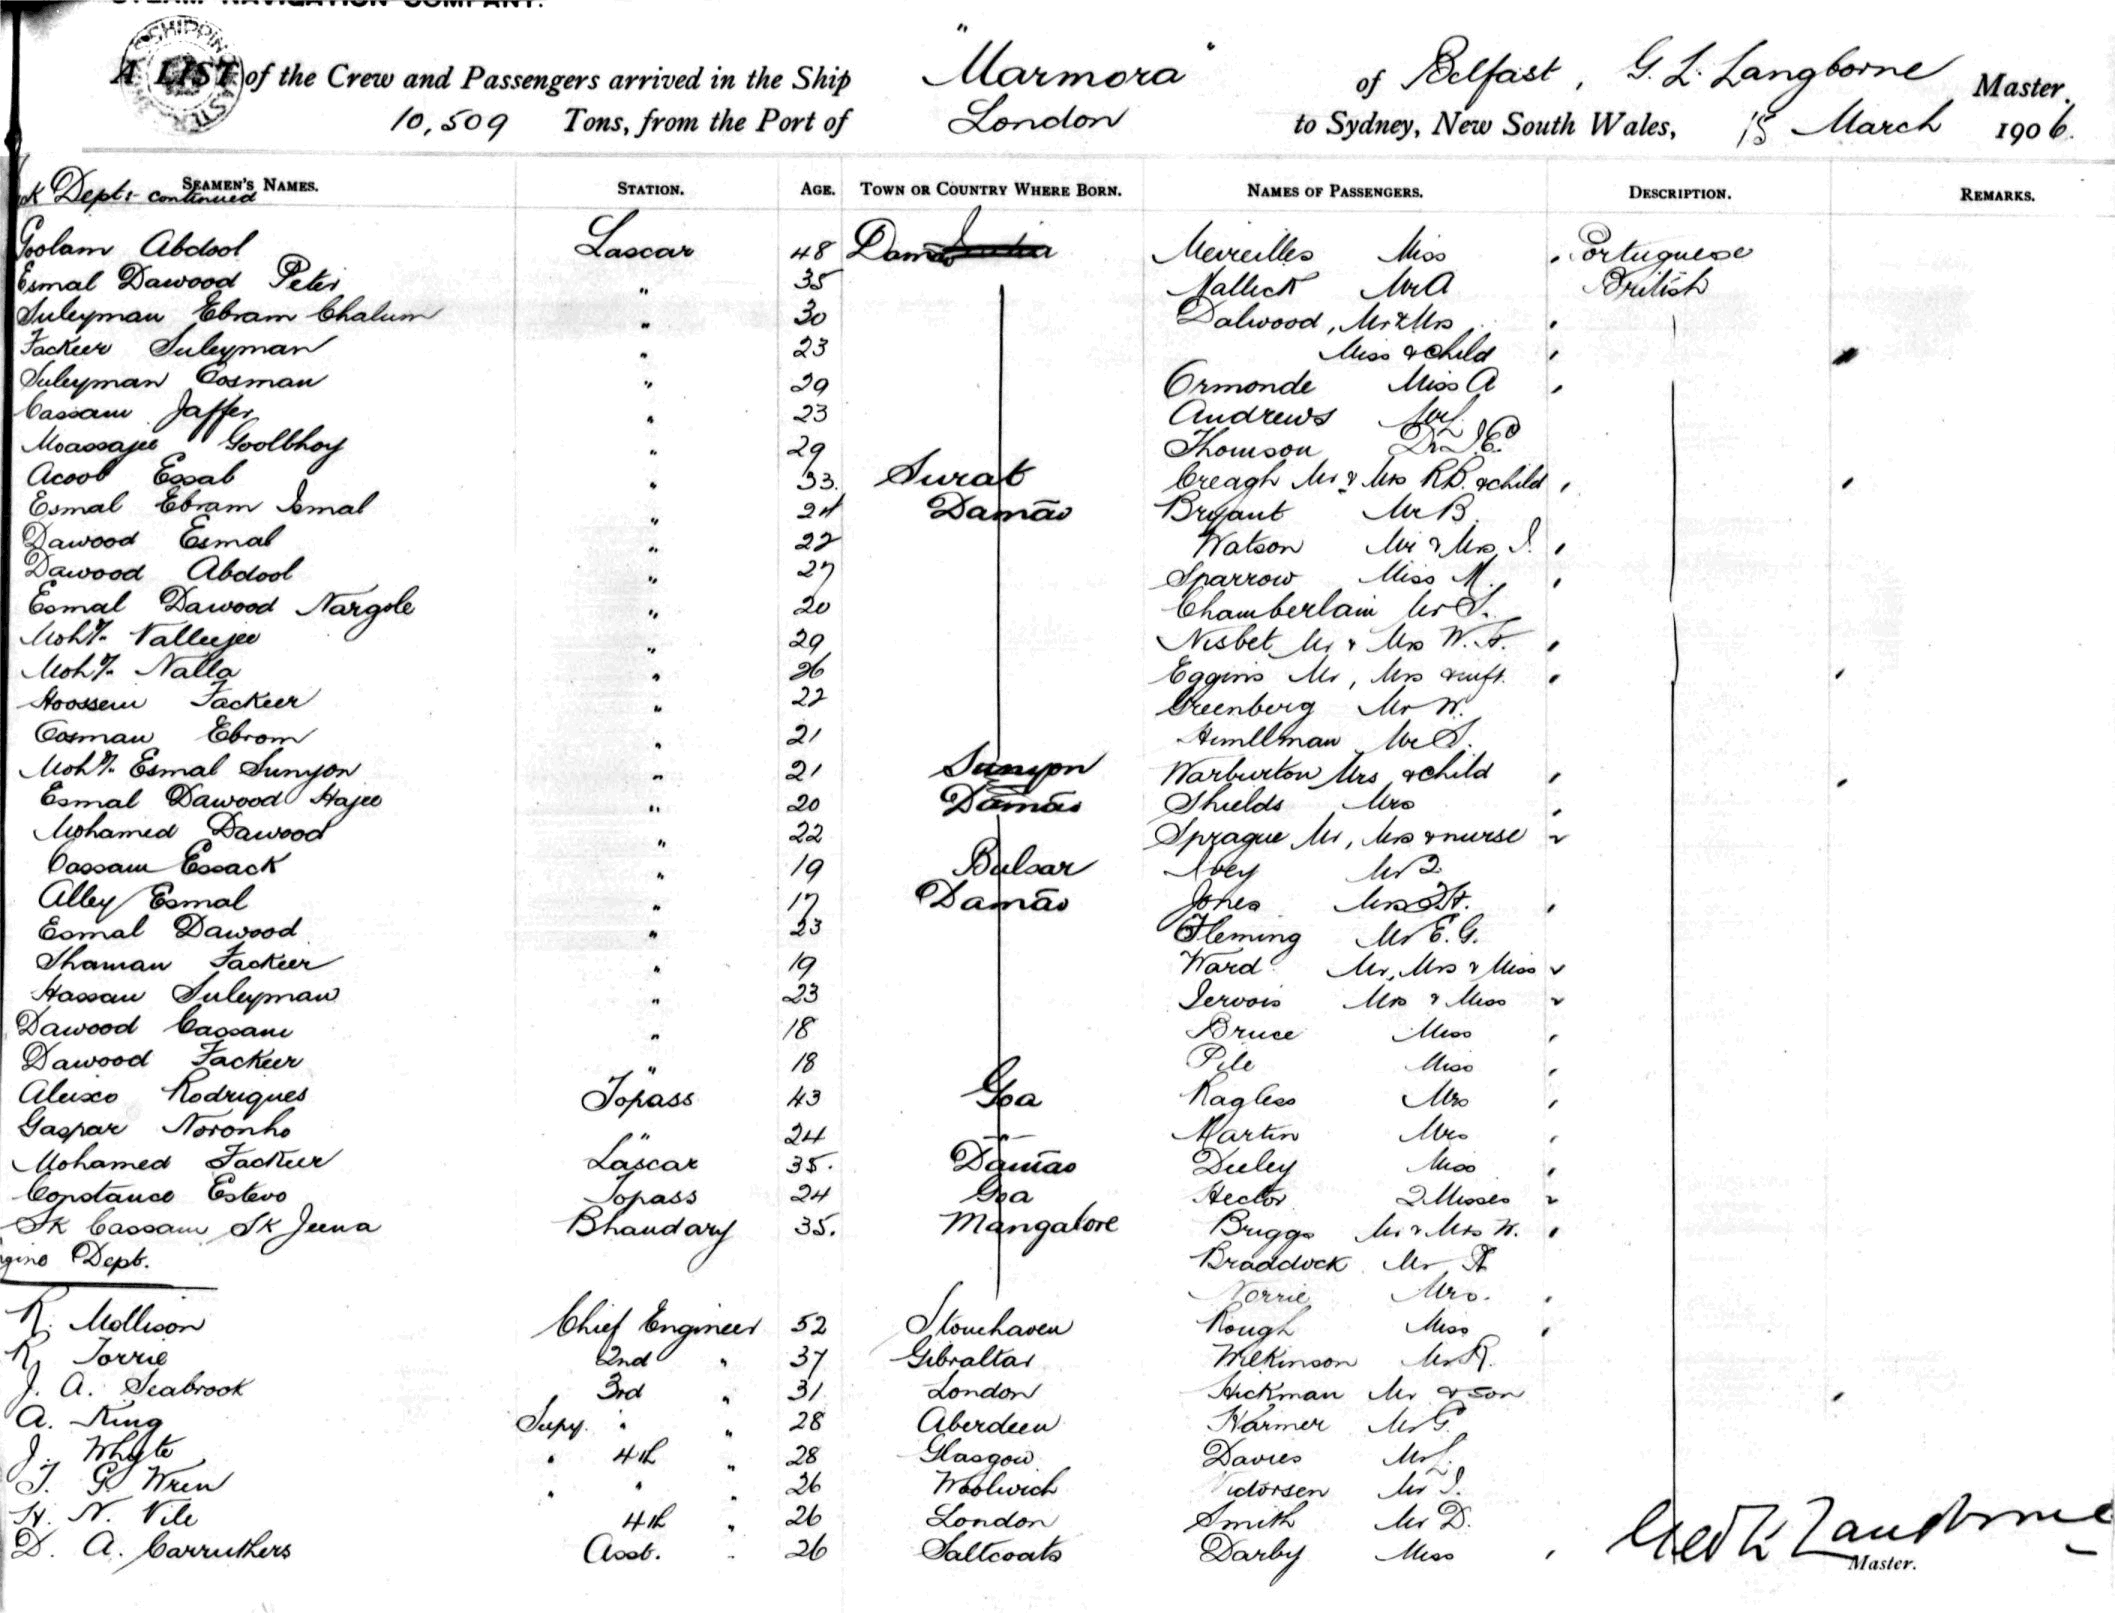 STEAM NAVIGATION COMPANY.
A LIST of the Crew and Passengers arrived in the Ship "Marmora" of Belfast, G. L. Langborne Master,
10,509 Tons, from the Port of London to Sydney, New South Wales, 15 March 1906.
SEAMEN'S NAMES. STATION. AGE. TOWN OR COUNTRY WHERE BORN. NAMES OF PASSENGERS. DESCRIPTION. REMARKS.
Dept. continued
Goolam Abdool Lascar 48 Meireilles Miss Portuguese
Esmal Dawood Peter " 35 Mallick Mr A British
Suleyman Ebram Chalum " 30 Dalwood, Mr & Mrs
Fackeer Suleyman " 23 Miss & child
Suleyman Oosman " 29 Ormonde Miss A
Cassam Jaffer " 23 Andrews Mr
Moassajee Goolbhoy " 29 Thomson Dr
Acoob Essab " 33. Surat Creagh Mr & Mrs R.B. & child
Esmal Ebram Ismal " 24 Damão Bryant Mr B.
Dawood Esmal " 22 Watson Mr & Mrs J.
Dawood Abdool " 27 Sparrow Miss M.
Esmal Dawood Nargole " 20 Chamberlain Mr S.
Moh'd. Valleejee " 29 Nisbet Mr & Mrs W. H.
Moh'd. Nalla " 26 Eggins Mr, Mrs & inft.
Hoossein Fackeer " 22 Greenberg Mr W.
Oosman Ebrom " 21 Himllman Mr S.
Moh'd. Esmal Sunyon " 21 Sunyon Warburton Mrs & child
Esmal Dawood Hajee " 20 Damão Shields Mrs
Mohamed Dawood " 22 Sprague Mr, Mrs & nurse
Cassam Essack " 19 Bulsar Ivey Mr
Alley Esmal " 17 Damão Jones Mrs
Esmal Dawood " 23 Fleming Mr E. G.
Shaman Fackeer " 19 Ward Mr, Mrs & Miss
Hassan Suleyman " 23 Jervois Mrs & Miss
Dawood Cassam " 18 Bruce Miss
Dawood Fackeer " 18 Pile Miss
Aleixo Rodrigues Topass 43 Goa Ragless Mrs
Gaspar Noronho " 24 " Martin Mrs
Mohamed Fackeer Lascar 35. Damão Deeley Miss
Constance Estevo Topass 24 Goa Hector 2 Misses
Sk Cassam Sk Jeena Bhandary 35. Mangalore Briggs Mr & Mrs W.
Dept. Braddock Mr A
Norrie Mrs.
R. Mollison Chief Engineer 52 Stonehaven Rough Miss
R. Torrie 2nd " 37 Gibraltar Wilkinson Mr R.
J. A. Seabrook 3rd " 31 London Hickman Mr & son
A. King Supy. " " 28 Aberdeen Harmer Mr G.
J. Whyte " 4th " 28 Glasgow Davies Mr
T. G. Wren " " " 26 Woolwich Mr J.
H. N. Vile 4th " 26 London Smith Mr D.
D. A. Carruthers Asst. " 26 Saltcoats Darby Miss
Master.